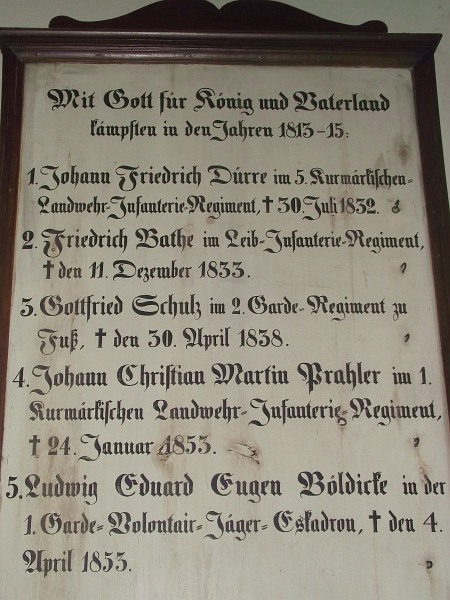 Mit Gott für König und Vaterland
kämpften in den Jahren 1813-15:
1. Johann Friedrich Dürre im 5. Kurmärkischen-
Landwehr-Infanterie-Regiment, † 30 Juli 1832.
2. Friedrich Bathe im Leib-Infanterie-Regiment,
† den 11. Dezember 1833.
3. Gottfried Schulz im 2. Garde-Regiment zu
Fuß, † den 30. April 1838.
4. Johann Christian Martin Prahler im 1.
Kurmärkischen Landwehr-Infanterie-Regiment,
† 24. Januar 1853.
5. Ludwig Eduard Eugen Böldicke in der
1. Garde-Volontair-Jäger-Eskadron, † den 4.
April 1853.